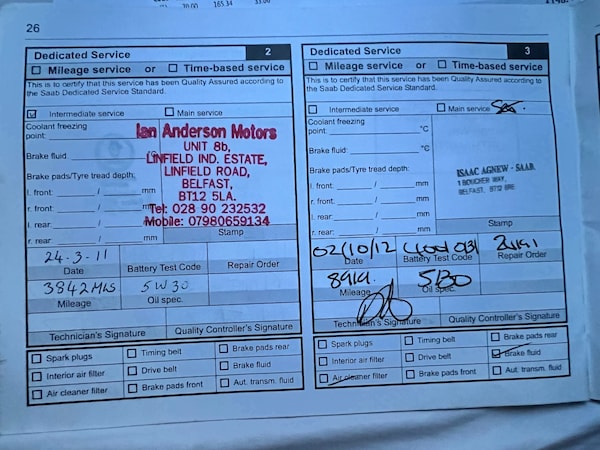 26
Dedicated Service 2
Mileage service or Time-based service
This is to certify that this service has been Quality Assured according to
the Saab Dedicated Service Standard.
Intermediate service Main service
Coolant freezing
point:
Brake fluid:
Brake pads/Tyre tread depth:
l. front: / mm
r. front: /
l. rear: /
r. rear: / mm
Ian Anderson Motors
UNIT 8b,
LINFIELD IND. ESTATE,
LINFIELD ROAD,
BELFAST,
BT12 5LA.
Tel: 028 90 232532
Mobile: 07980659134
Stamp
24-3-11
Date Battery Test Code Repair Order
3842 MLS 5W30
Mileage Oil spec.
Technician's Signature Quality Controller's Signature
Spark plugs Timing belt Brake pads rear
Interior air filter Drive belt Brake fluid
Air cleaner filter Brake pads front Aut. transm. fluid
Dedicated Service 3
Mileage service or Time-based service
This is to certify that this service has been Quality Assured according to
the Saab Dedicated Service Standard.
Intermediate service Main service
Coolant freezing
point: °C
Brake fluid: °C
Brake pads/Tyre tread depth:
l. front: / mm
r. front: / mm
l. rear: / mm
r. rear: / mm
ISAAC AGNEW - SAAB.
1 BOUCHER WAY,
BELFAST, BT12 6RE
Stamp
02/10/12
Date Battery Test Code Repair Order
8919 5/30
Mileage Oil spec.
Technician's Signature Quality Controller's Signature
Spark plugs Timing belt Brake pads rear
Interior air filter Drive belt Brake fluid
Air cleaner filter Brake pads front Aut. transm. fluid